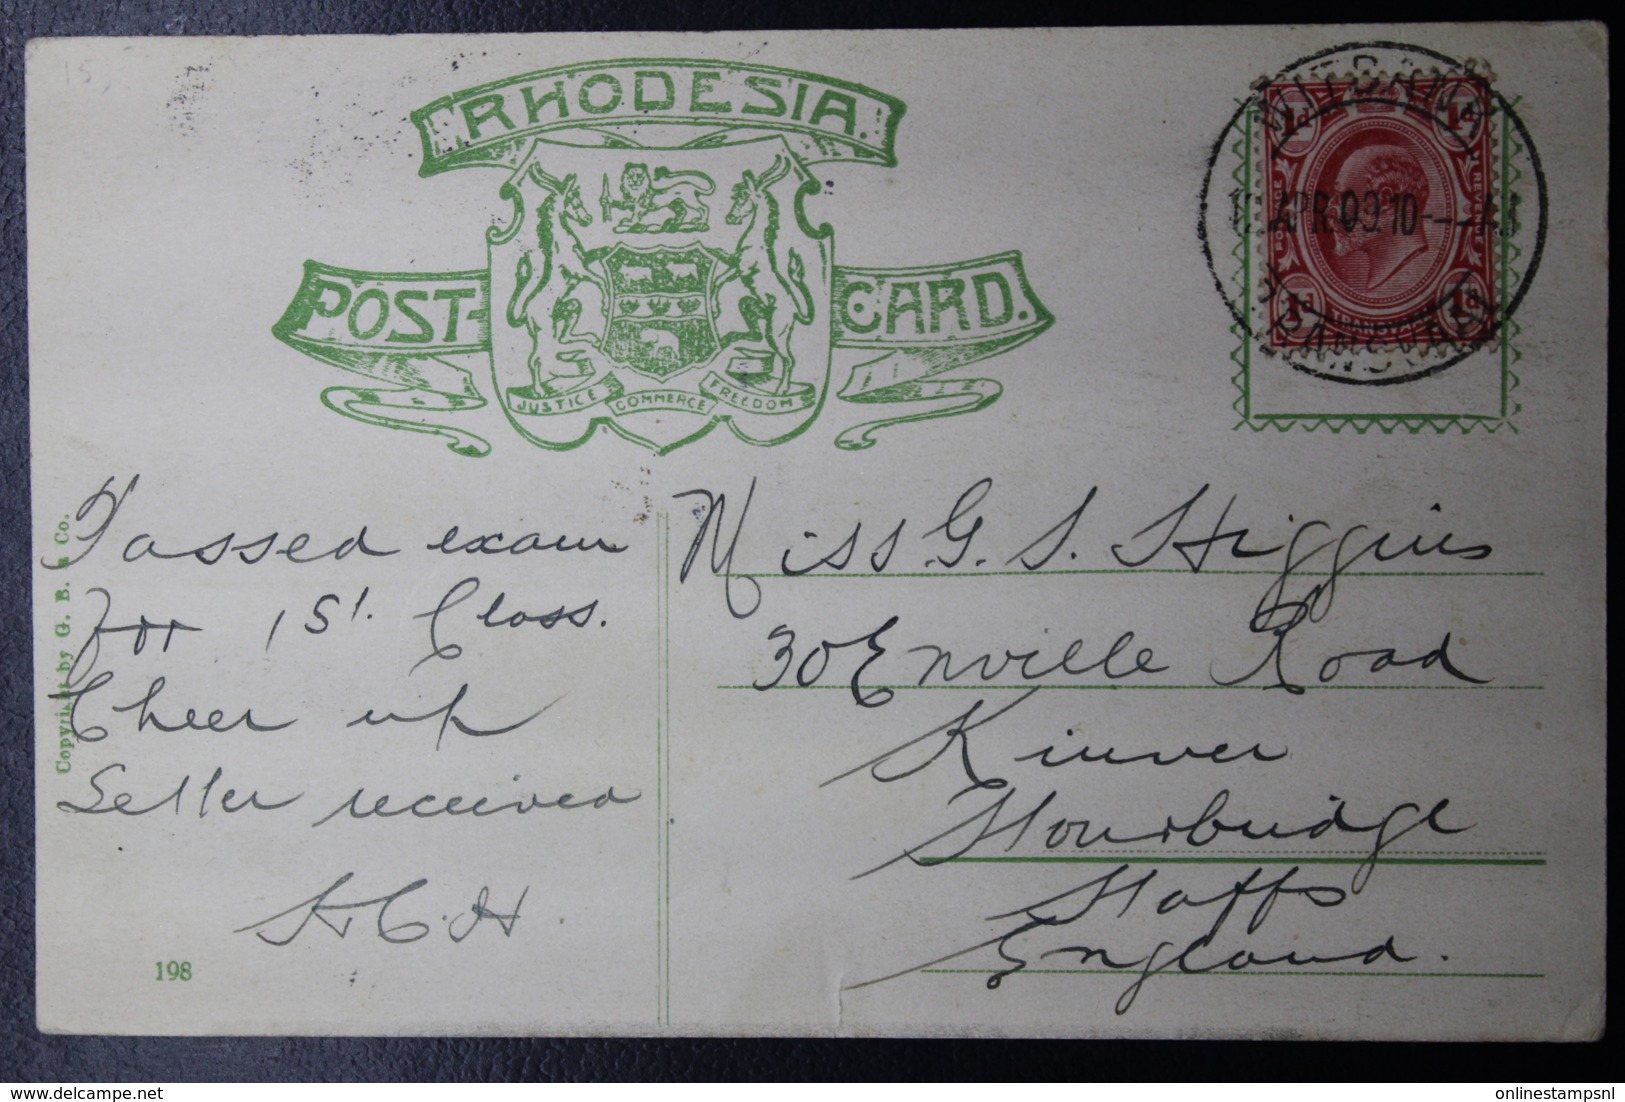 15
RHODESIA.
POST-
CARD.
JUSTICE COMMERCE FREEDOM
WITBANK
APR 09.10
TRANSVAAL
POSTAGE
REVENUE
1d
1d
1d
1d
TRANSVAAL
Passed exam
for 1st. Class.
Cheer up
Letter received
H.C.H.
Miss G. S. Higgins
30 Enville Road
Kinver
Stourbridge
Staffs
England.
Copyright by G. B. & Co.
198
onlinestampsnl